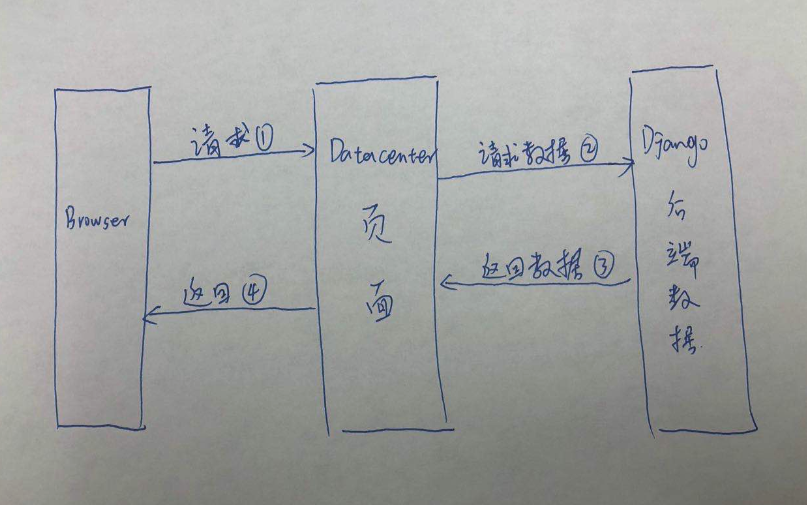 Browser
请求①
返回④
Datacenter
页
面
请求数据②
返回数据③
Django
后
端
数
据